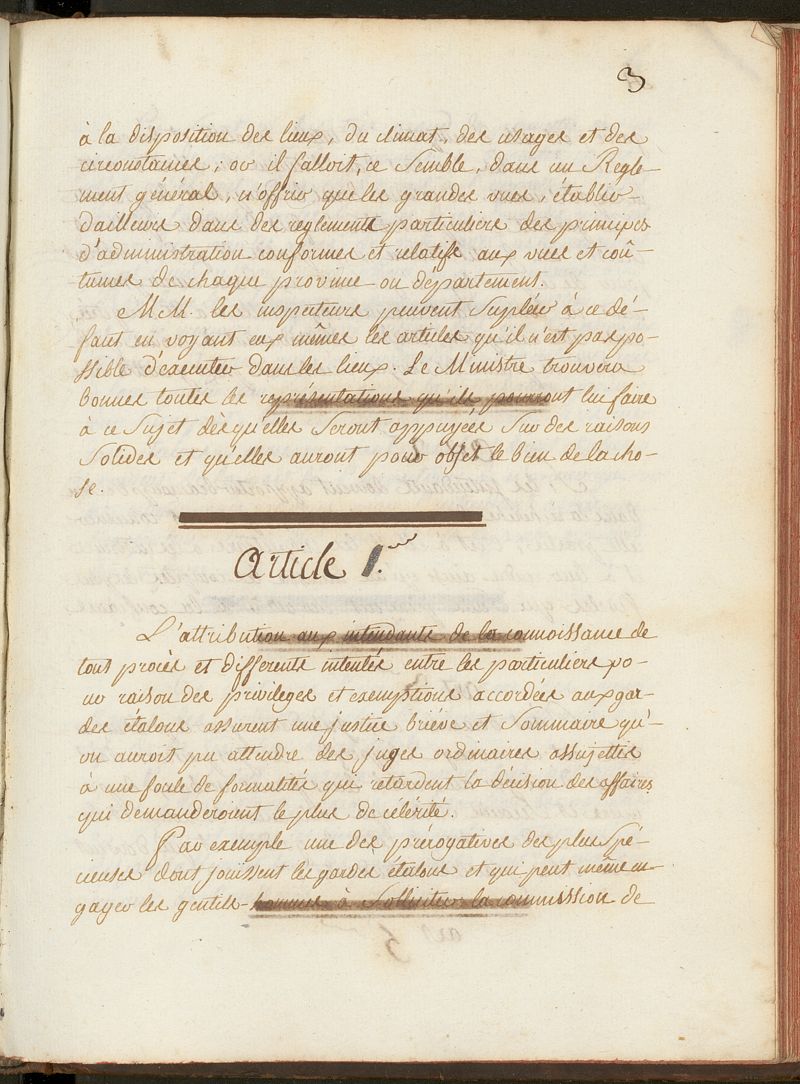 3
à la disposition des lieux, du climat, des usages et des
circonstances; or il falloit, ce Semble, dans un Regle-
ment général, n'offrir que les grandes vues, établir
dailleurs dans des reglements particuliers des principes
d'administration conformes et relatifs aux vues et coû-
tumes de chaque province ou departement.
MM. les inspecteurs peuvent Supléer à ce dé-
faut en voyant eux mêmes les articles qu'il n'est pas po-
ssible d'executer dans les lieux. Le Ministre trouvera
bonnes toutes les représentations qu'ils pourront lui faire
à ce Sujet dès qu'elles Seront appuyées Sur des raisons
Solides et qu'elles auront pour objet le bien de la cho-
se.
Article 1.er
L'attribution aux intendants de la connoissance de
tous procès et differents intentés entre les particuliers po-
ur raison des privileges et exemptions accordées aux gar-
des étalons assurent une justice briéve et Sommaire qu'-
on auroit pu attendre des juges ordinaires assujettis
à une foule de formalités qui retardent la décision des affaires
qui demanderoient le plus de célérité.
Par exemple une des prérogatives des plus Spé-
cieuses dont jouissent les gardes étalons et qui peut même en-
gager les gentils-hommes à Solliciter la commission de